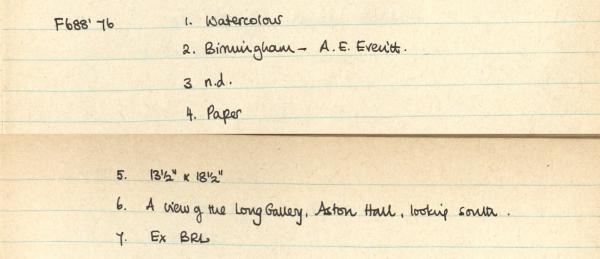 F688'76 1. Watercolour
2. Birmingham - A.E. Everitt.
3 n.d.
4. Paper
5. 13½" x 18½"
6. A view of the Long Gallery, Aston Hall, looking south.
7. Ex BRL